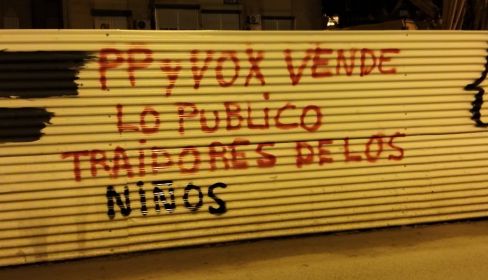 PP y VOX VENDE
LO PUBLICO
TRAIDORES DE LOS
NIÑOS